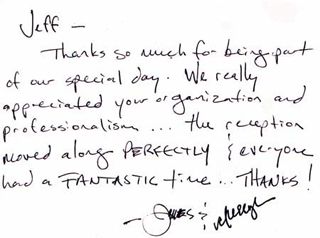 Jeff —
Thanks so much for being part
of our special day. We really
appreciated your organization and
professionalism ... the reception
moved along PERFECTLY & everyone
had a FANTASTIC time ... THANKS!
— James &